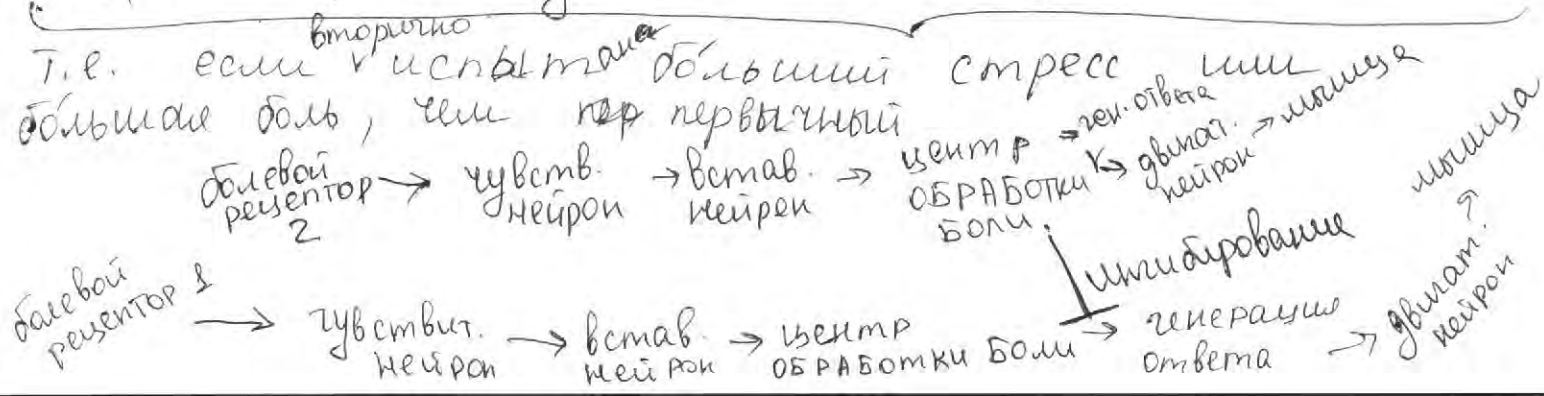 вторично
т.е. если v испытана больший стресс или
большая боль, чем пер первычный
болевой рецептор 2 → чувств. нейрон → встав. нейрон → центр ОБРАБОТКИ БОЛИ → ген. ответа → двигат. нейрон → мышца
ингибирование
болевой рецептор 1 → чувствит. нейрон → встав. нейрон → центр ОБРАБОТКИ БОЛИ → генерация ответа → двигат. нейрон → мышца